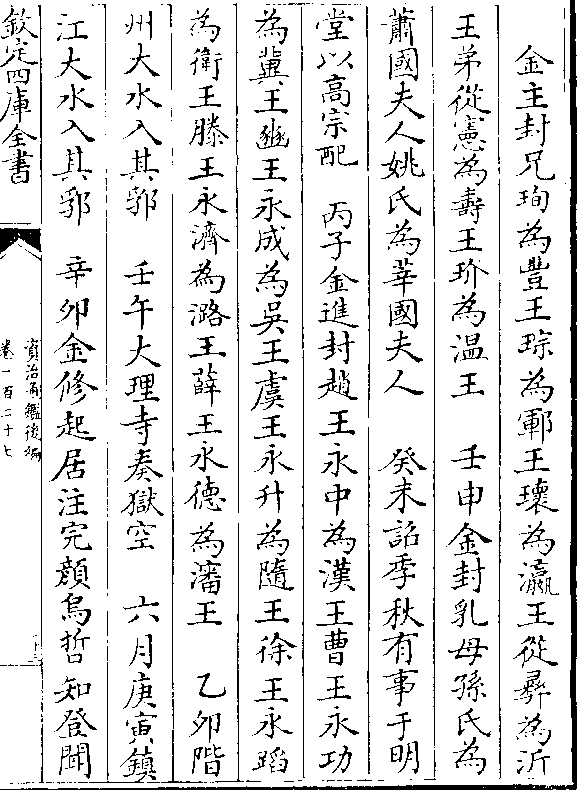 金主封兄珣為豐王琮為鄆王瓌為瀛王從彝為沂
王弟從憲為壽王玠為温王　壬申金封乳母孫氏為
蕭國夫人姚氏為莘國夫人　癸未詔季秋有事于明
堂以高宗配　丙子金進封趙王永中為漢王曹王永功
為冀王豳王永成為吳王虞王永升為隨王徐王永蹈
為衛王滕王永濟為潞王薛王永德為瀋王　乙卯階
州大水入其郛　壬午大理寺奏獄空　六月庚寅鎮
江大水入其郛　辛卯金修起居注完顔烏哲知登聞
欽定四庫全書
資治通鑑後編
卷一百二十七